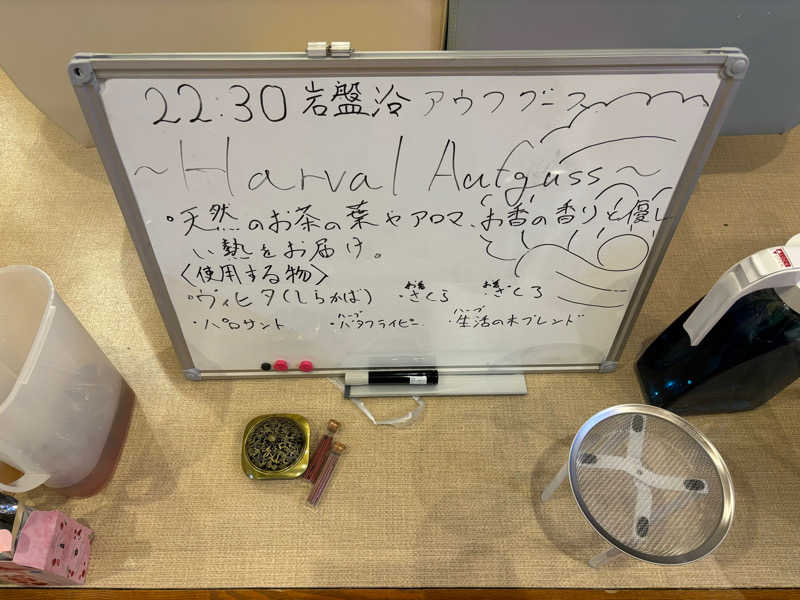 22:30 岩盤浴 アウフグース
~Harval Aufguss~
・天然のお茶の葉やアロマ、お香の香りと優し
い熱をお届け。
<使用する物>
・ヴィヒタ(しらかば) ・お茶 ざくろ ・お香 ざくろ
・パロサント ・ハーブ バタフライピー ・ハーブ 生活の木ブレンド